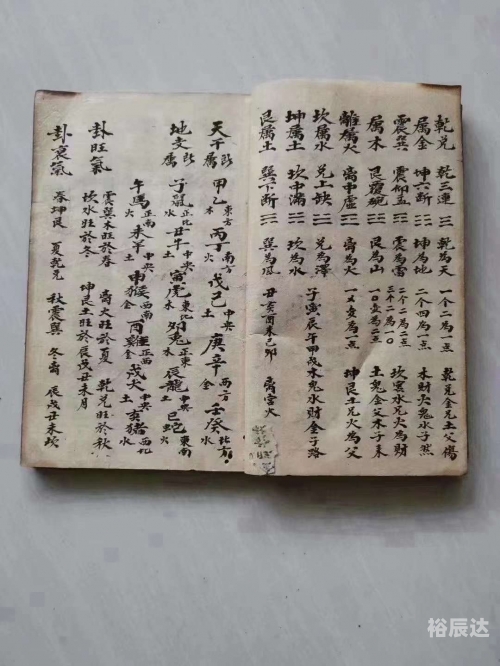 乾兑 乾三連 ☰ 乾為天 一个二為一点 乾兑金兄土父傷
属金 坤六断 ☷ 坤為地 二个四為一点 木財火鬼水子然
震巽 震仰盂 ☳ 震為雷 二為二点 坎宫水兄火為財
属木 艮覆碗 ☶ 艮為山 一〇变為二点 土鬼金父木子来
離属火 離中虚 ☲ 离為火 一乂变為一点 坤艮土兄火為父
坎属水 兑上缺 ☱ 兑為澤 子寅辰午申戌木鬼水財金子路
坤属土 坎中满 ☵ 坎為水
艮属土 巽下断 ☴ 巽為風 丑亥酉未巳卯 离宫火
天干属 甲乙木東方 丙丁火南方 戊己土中央 庚辛金西方 壬癸水北方
地支属 子鼠水正北 丑牛土中央 寅虎木東北 卯兔木正東 辰龍土中央 巳蛇火東南
午馬火正南 未羊土中央 申猴金西南 酉雞金正西 戌火土中央 亥猪水西北
卦旺氣 震巽木旺於春 离火旺於夏 乾兑旺於秋
坎水旺於冬 坤艮土旺於辰戌丑未月
卦衰氣 春坤艮 夏乾兑 秋震巽 冬离 辰戌丑未坎
裕辰达